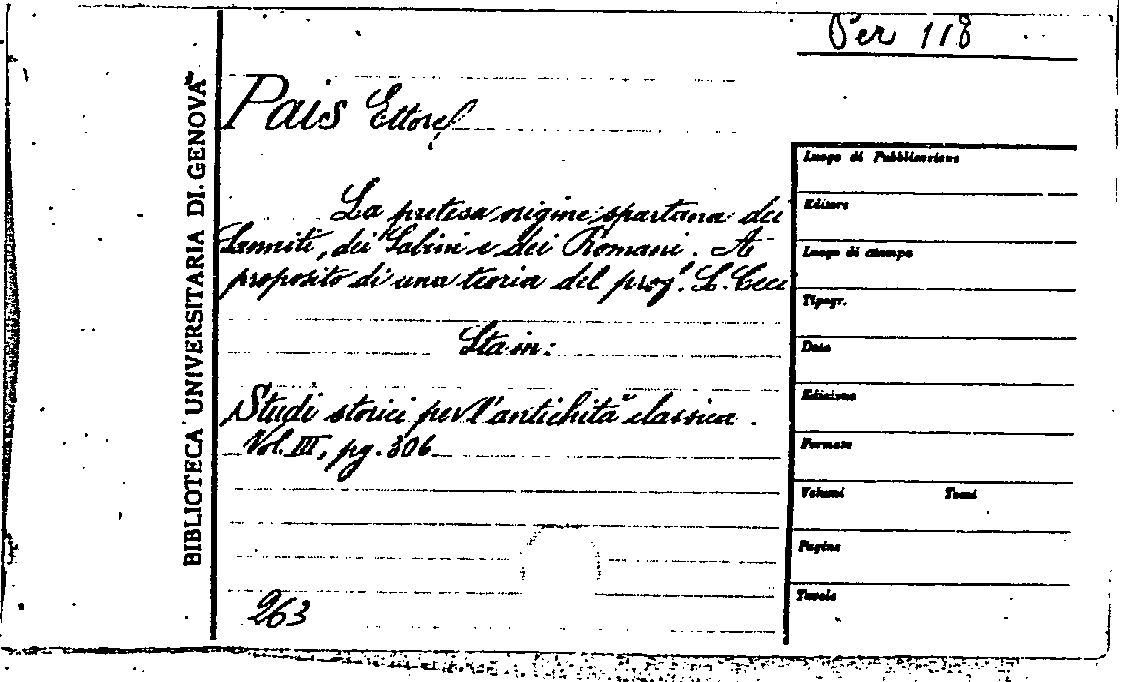 Per 118
BIBLIOTECA UNIVERSITARIA DI GENOVA
Pais Ettore
La pretesa origine spartana dei
Sanniti, dei Sabini e dei Romani. A
proposito di una teoria del prof. L. Ceci
Sta in:
Studi storici per l'antichità classica.
Vol. III, pg. 306
263
Luogo di Pubblicazione
Editore
Luogo di stampa
Tipogr.
Data
Edizione
Formato
Volumi Tomi
Pagine
Tavole